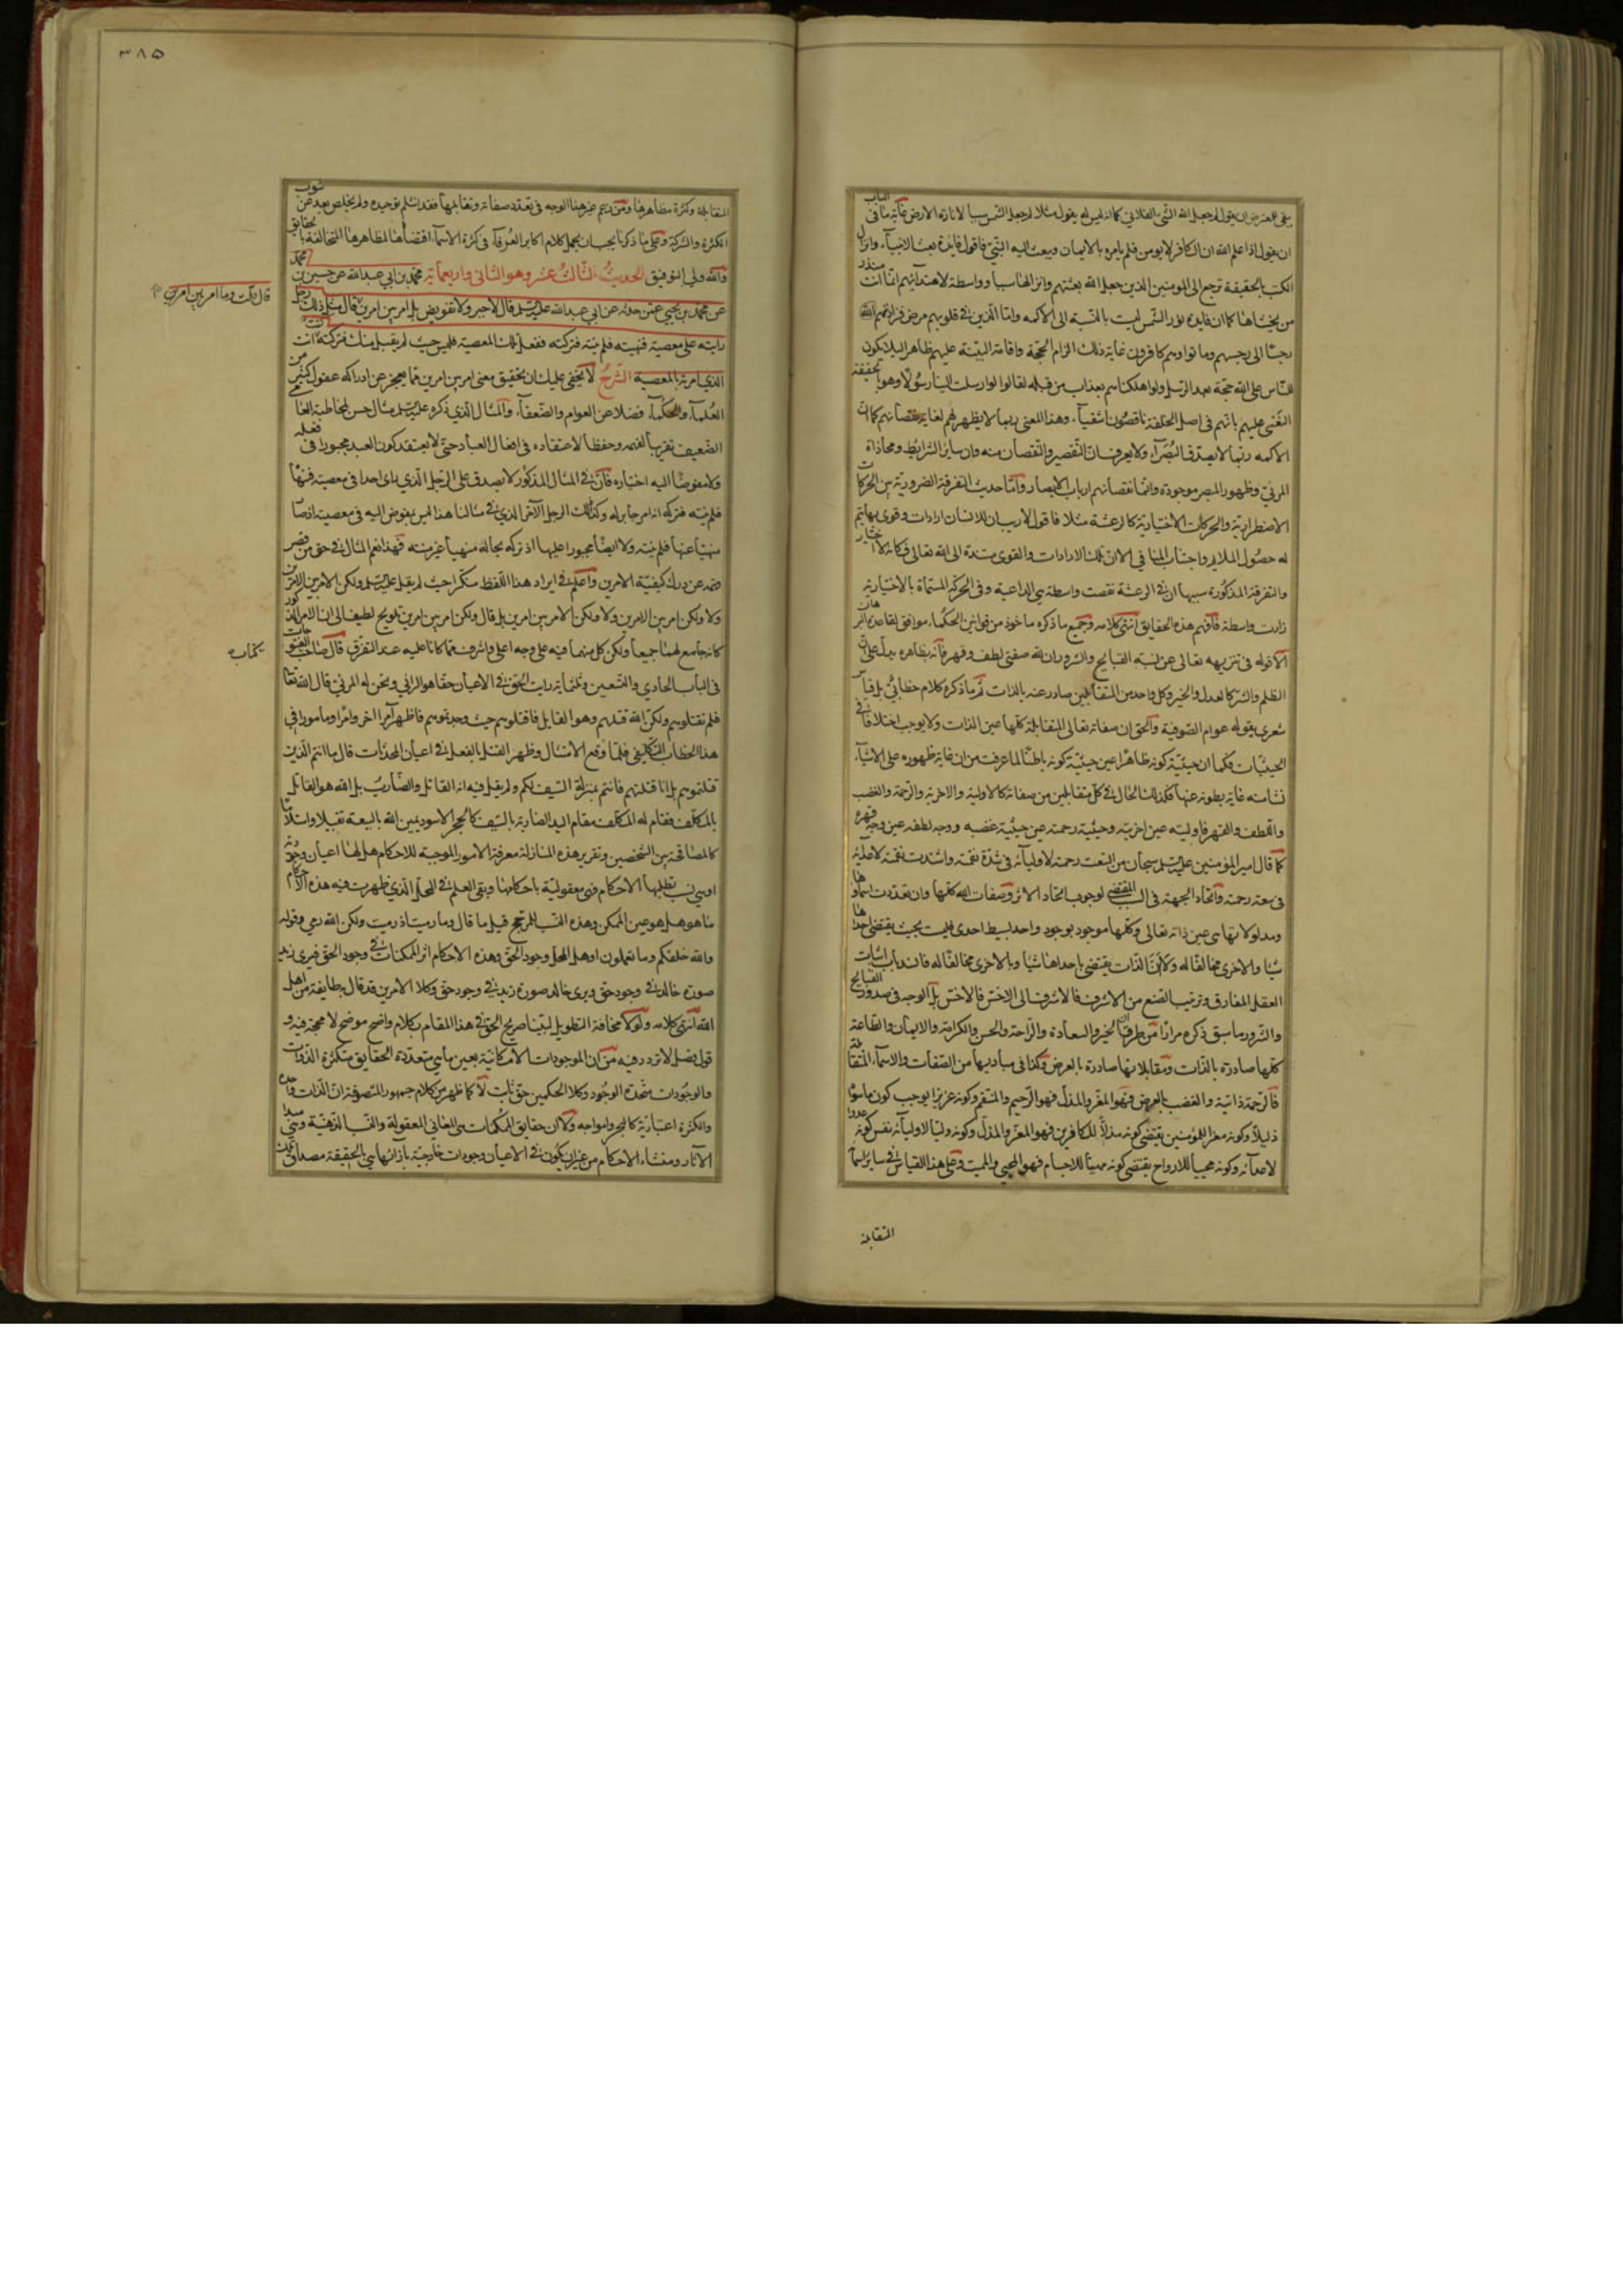 يبقى للمعترض ان يقول لم جعل الله الشئ الفلاني كما انه ليس له يقول مثلا لم جعل الشمس سببا لانارة الارض غاية ما في الباب
ان يقول اذا علم الله ان الكافر لا يومن فلم يامره بالايمان ويبعث اليه النبيّ فاقول فايدة بعث الانبياء وانزال
الكتب بالحقيقة ترجع الى المومنين الذين جعل الله بعثتهم وانزالها سببا وواسطة لاهتدائهم انما انت منذر
من يخشاها كما ان فايدة نور الشمس ليست بالنسبة الى الاكمه واما الذين في قلوبهم مرض فزادتهم
رجسا الى رجسهم وماتوا وهم كافرون غاية ذلك الزام الحجة واقامة البينة عليهم ظاهرا لئلا يكون
للناس على الله حجة بعد الرسل ولو اهلكناهم بعذاب من قبله لقالوا لولا ارسلت الينا رسولا وهو بالحقيقة
النعي عليهم بانهم في اصل الخلقة ناقصون اشقياء وهذا المعنى ربما لا يظهر لهم لغاية نقصانهم كما ان
الاكمه ربما لا يصدق البصراء ولا يعرف ان التقصير والنقصان منه وان ساير الشرايط ومحاذاة
المرئي وظهور المبصر موجودة وانما نقصانهم ارباب الابصار واما حديث التفرقة الضرورية بين الحركات
الاضطرارية والحركات الاختيارية كالرعشة مثلا فاقول لا ريب ان للانسان ارادات وقوى بها يتم
له حصول الملايم واجتناب المنافي الا ان تلك الارادات والقوى مستندة الى الله تعالى فكانه لا اختيار
والتفرقة المذكورة سببها ان في الرعشة نقصت واسطة هي الداعية وفي الحركة المسماة بالاختيارية
زادت واسطة فافهم هذه الحقايق انتهى كلامه وجميع ما ذكره ما خوذ من قوانين الحكماء موافق لقاعدة البرهان
الا قوله في تنزيهه تعالى عن نسبة القبايح والشرور ان لله صفتي لطف وقهر فانه بظاهره يدل على ان
الظلم والشر كالعدل والخير وكل واحد من المتقابلين صادر عنه بالذات ثم ما ذكره كلام خطابي بل قياس
شعري يقوله عوام الصوفية والحق ان صفاته تعالى المتقابلة كلها عين الذات ولا يوجب اختلافا في
الحيثيات فكما ان حيثية كونه ظاهرا عين حيثية كونه باطنا لما عرفت من ان غاية ظهوره على الاشياء
نشات غاية بطونه عنها فكذلك الحال في كل متقابلين من صفاته كالاولية والاخرية والرحمة والغضب
واللطف والقهر فاوليته عين اخريته وحيثية رحمته عين حيثية غضبه ووجه لطفه عين وجه قهره
كما قال امير المؤمنين عليه السلم سبحان من اتسعت رحمته لاوليائه في شدة نقمته واشتدت نقمته لاعدائه
في سعة رحمته واتحاد الجهة في السبب المقتضي لوجوب اتحاد الاثر وصفات الله كلها وان تعددت اسماؤها
ومدلولاتها هي عين ذاته تعالى وكلها موجود بوجود واحد بسيط احدى فليست بحيث يقتضي احدها
شيئا والاخرى مخالفا له ولا ان الذات يقتضي باحداها شيئا وبالاخرى مخالفا له فانسد باب اثبات
العقل المفارق وترتيب الصنع من الاشرف فالاشرف الى الاخس فالاخس بل الوجه في صدور القبايح
والشرور ما سبق ذكره مرارا من ان طرف الخير والسعادة والراحة والحسن والكرامة والايمان والطاعة
كلها صادرة بالذات ومقابلاتها صادرة بالعرض وكذا في مباديها من الصفات والاسماء المتقابلة
فالرحمة ذاتية والغضب بالعرض فهو المعز والمذل فهو الرحيم والمنتقم وكونه عزيزا يوجب كون ما سواه
ذليلا وكونه معزا للمومنين يقتضي كونه مذلا للكافرين فهو المعز والمذل وكونه وليا لاوليائه نفس كونه عدوا
لاعدائه وكونه محييا للارواح يقتضي كونه مميتا للاجسام فهو المحيي والمميت وعلى هذا القياس في ساير اسمائه
المتقابلة
٣٨٥
المتقابلة وكثرة مظاهرها ومن زعم غير هذا الوجه في تعدد صفاته وتقابلها فقد انثلم توحيده ولم يخلص بعد عن شوب
الكثرة والشركة وعلى ما ذكرنا يجب ان يحمل كلام اكابر العرفاء في كثرة الاسماء اقتضاها لمظاهرها المتخالفة بالحقايق
والله ولي التوفيق الحديث الثالث عشر وهو الثاني واربعماية محمد بن ابي عبد الله عن حسين بن محمد
عن محمد بن يحيى عمن حدثه عن ابي عبد الله عليه السلم قال لا جبر ولا تفويض بل امر بين امرين قال مثل ذلك رجل
قال قلت وما امر بين امرين
رايته على معصية فنهيته فلم ينته فتركته ففعل تلك المعصية فليس حيث لم يقبل منك فتركته كنت انت
الذي امرته بالمعصية الشرح لا يخفى عليك ان تحقيق معنى امر بين امرين مما يعجز عن ادراكه عقول كثير من
العلماء والحكماء فضلا عن العوام والضعفاء والمثال الذي ذكره عليه السلم مثال حسن لمخاطبة
الضعيف تقريبا لفهمه وحفظا لاعتقاده في افعال العباد حتى لا يعتقد كون العبد مجبورا في فعله
ولا مفوضا اليه اختياره فان في المثال المذكور لا يصدق على الرجل الذي راى احدا في معصية فنهاه
فلم ينته فتركه انه امر جابر له وكذلك الرجل الآخر الذي في مثالنا هذا ليس بمفوض اليه في معصية اذ صار
منهيا عنها فلم ينته ولا ايضا مجبورا عليها اذ تركه بحاله منهيا غير منته فهذا نعم المثال في حق من قصر
فهمه عن درك كيفية الامرين واعلم في ايراد هذا اللفظ منكرا حيث لم يقل عليه السلم ولكن الامر بين الامرين
ولا ولكن امر بين الامرين ولا ولكن الامر بين امرين بل قال ولكن امر بين امرين تلويح لطيف الى ان الامر المذكور
كانه جامع لهما جميعا ولكن كل منهما فيه على وجه اعلى واشرف مما كانا عليه عند التفرق قال صاحب الفتوحات
بكتابه
في الباب الحادي والتسعين وثلثماية رايت الحق في الاعيان حقا هو الرائي ونحن له المرئي قال الله تعالى
فلم تقتلوهم ولكن الله قتلهم وهو القايل فاقتلوهم حيث وجدتموهم فاظهر آمرا اخر وامرا ومامورا في
هذا الخطاب التكليفي فلما وقع الامتثال وظهر القتل بالفعل في اعيان المحدثات قال ما انتم الذين
قتلتموهم بل انا قتلتهم فانتم بمنزلة السيف لكم ولم يقل فيه انه القاتل والضارب بل الله هو القاتل
بالمكلف فقام له المكلف مقام اليد الضاربة بالسيف كالحجر الاسود يمين الله بالبيعة تقبيلا واستلاما
كالمصافحة بين الشخصين وتقرير هذه المنازلة معرفة الامور الموجبة للاحكام هل لها اعيان وجودية
او هي نسب تطلبها الاحكام فهي معقولية باحكامها وبقي العلم في المحل الذي ظهرت فيه هذه الاحكام
ما هو هل هو عين الممكن وهذه النسب للمرجح قيل ما قال وما رميت اذ رميت ولكن الله رمى وقوله
والله خلقكم وما تعملون او هل المحل وجود الحق وهذه الاحكام اثر الممكنات في وجود الحق فيرى زيد
صورة خالد في وجود حق ويرى خالد صورة زيد في وجود حق وكلا الامرين قد قال به طايفة من اهل
الله انتهى كلامه ولولا مخافة التطويل لبينا صريح الحق في هذا المقام بكلام واضح موضح لا مجمجة فيه و
قول فصل لا تردد فيه من ان الموجودات الامكانية بعين ما هي متعددة الحقايق متكثرة الذوات
والوجودات متحدة الوجود وكلا الحكمين حق ثابت لا كما ظهر من كلام جمهور المتصوفة ان الذات واحدة
والكثرة اعتبارية كالبحر وامواجه ولا ان حقايق الممكنات هي المعاني المعقولة والنسب الذهنية وهي مبدا
الآثار ومنشاء الاحكام من غير ان يكون في الاعيان وجودات خارجية بازائها هي بالحقيقة مصداق تلك